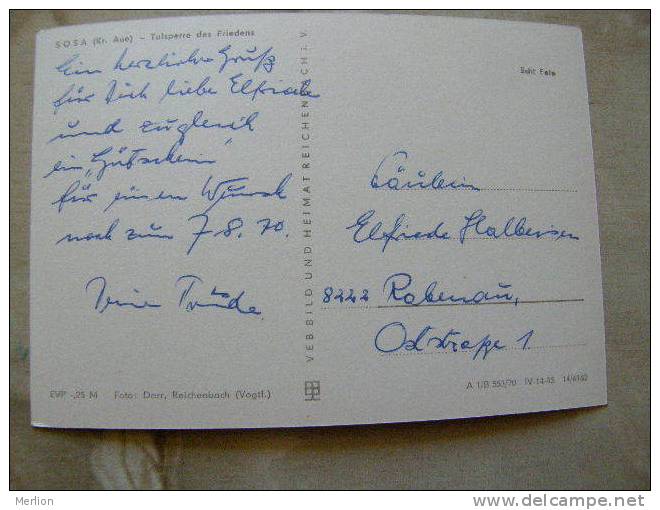 SOSA (Kr. Aue) – Talsperre des Friedens
Ein herzlicher Gruß
für Dich liebe Elfriede
und zugleich
ein "Gutschein"
für einen Wunsch
noch zum 7.8.70.
Deine Trude.
EVP -,25 M Foto: Darr, Reichenbach (Vogtl.)
VEB BILD UND HEIMAT REICHENBACH i. V.
Echt Foto
Fräulein
Elfriede
8222 Rabenau,
Oststraße 1
A 1/B 550/70 IV-14-45 14/6162
Merlion
www.delcampe.net